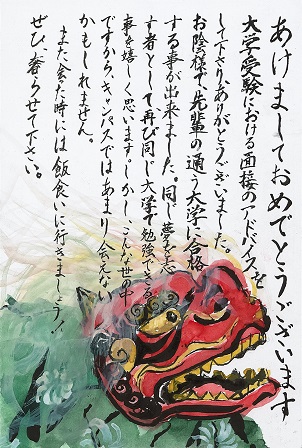 あけましておめでとうございます
大学受験における面接のアドバイスを
して下さり、ありがとうございました。
お陰様で、先輩の通う大学に合格
する事が出来ました。同じ夢を志
す者として、再び同じ大学で勉強できる
事を嬉しく思います。しかし、こんな世の中
ですから、キャンパスではあまり会えない
かもしれません。
また会った時には飯食いに行きましょう!!
ぜひ、奢らせて下さい。